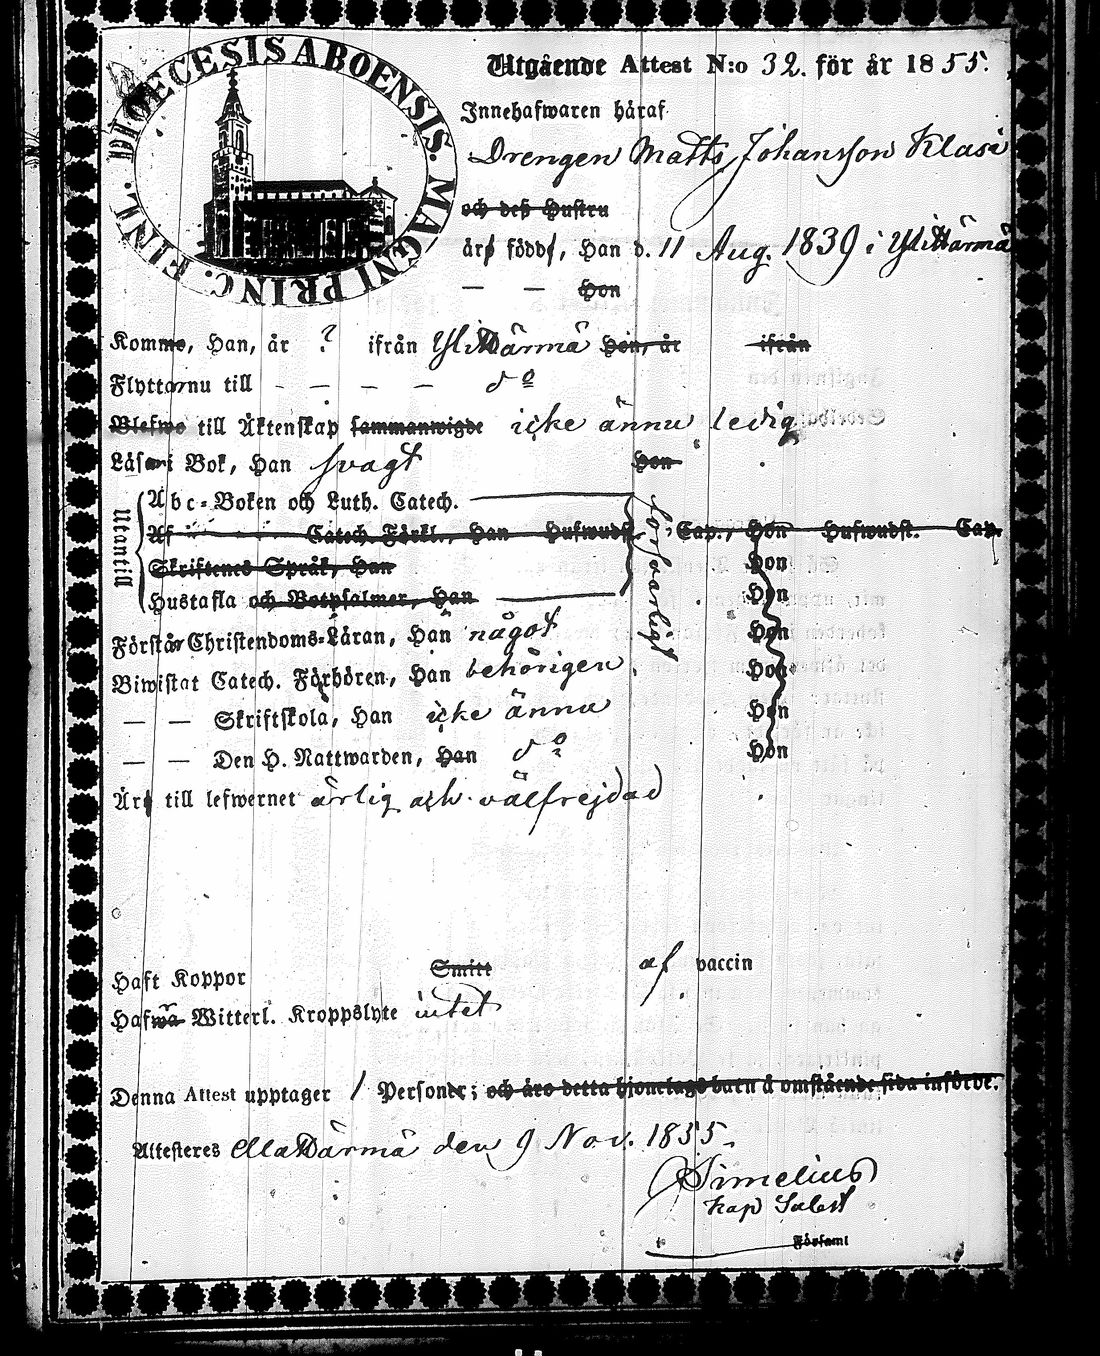 DIOECESIS ABOENSIS. MAGNI PRINC. FINL.
Utgående Attest N:o 32. för år 1855.
Innehafwaren häraf
Drengen Matts Johansson Klasi
och deß Hustru
äro födde, Han d. 11 Aug. 1839 i YliHärmä
— — Hon
Komme, Han, år ? ifrån YliHärmä Hon, år ifrån
Flyttar nu till - — — — d:o
Blefwo till Äktenskap sammanwigde icke ännu ledig
Läsa i Bok, Han svagt Hon
Utantill
Abc-Boken och Luth. Catech.
Af Catech. Förkl., Han Hufwudst. Cap., Hon Hufwudst. Cap.
Skriftenes Språk, Han Hon
Hustafla och Botpsalmer, Han Hon
försvarligt
Förstår Christendoms-Läran, Han något Hon
Biwistat Catech. Förhören, Han behörigen Hon
— — Skriftskola, Han icke ännu Hon
— — Den H. Nattwarden, Han d:o Hon
Äro till lefwernet ärlig och välfrejdad
Haft Koppor Smitt af vaccin
Hafwa Witterl. Kroppslyte intet
Denna Attest upptager 1 Personer; och äro detta hjonelags barn å omstående sida införde.
Attesteres AlaHärmä den 9 Nov. 1855.
Simelius
Kap Subst
Församl